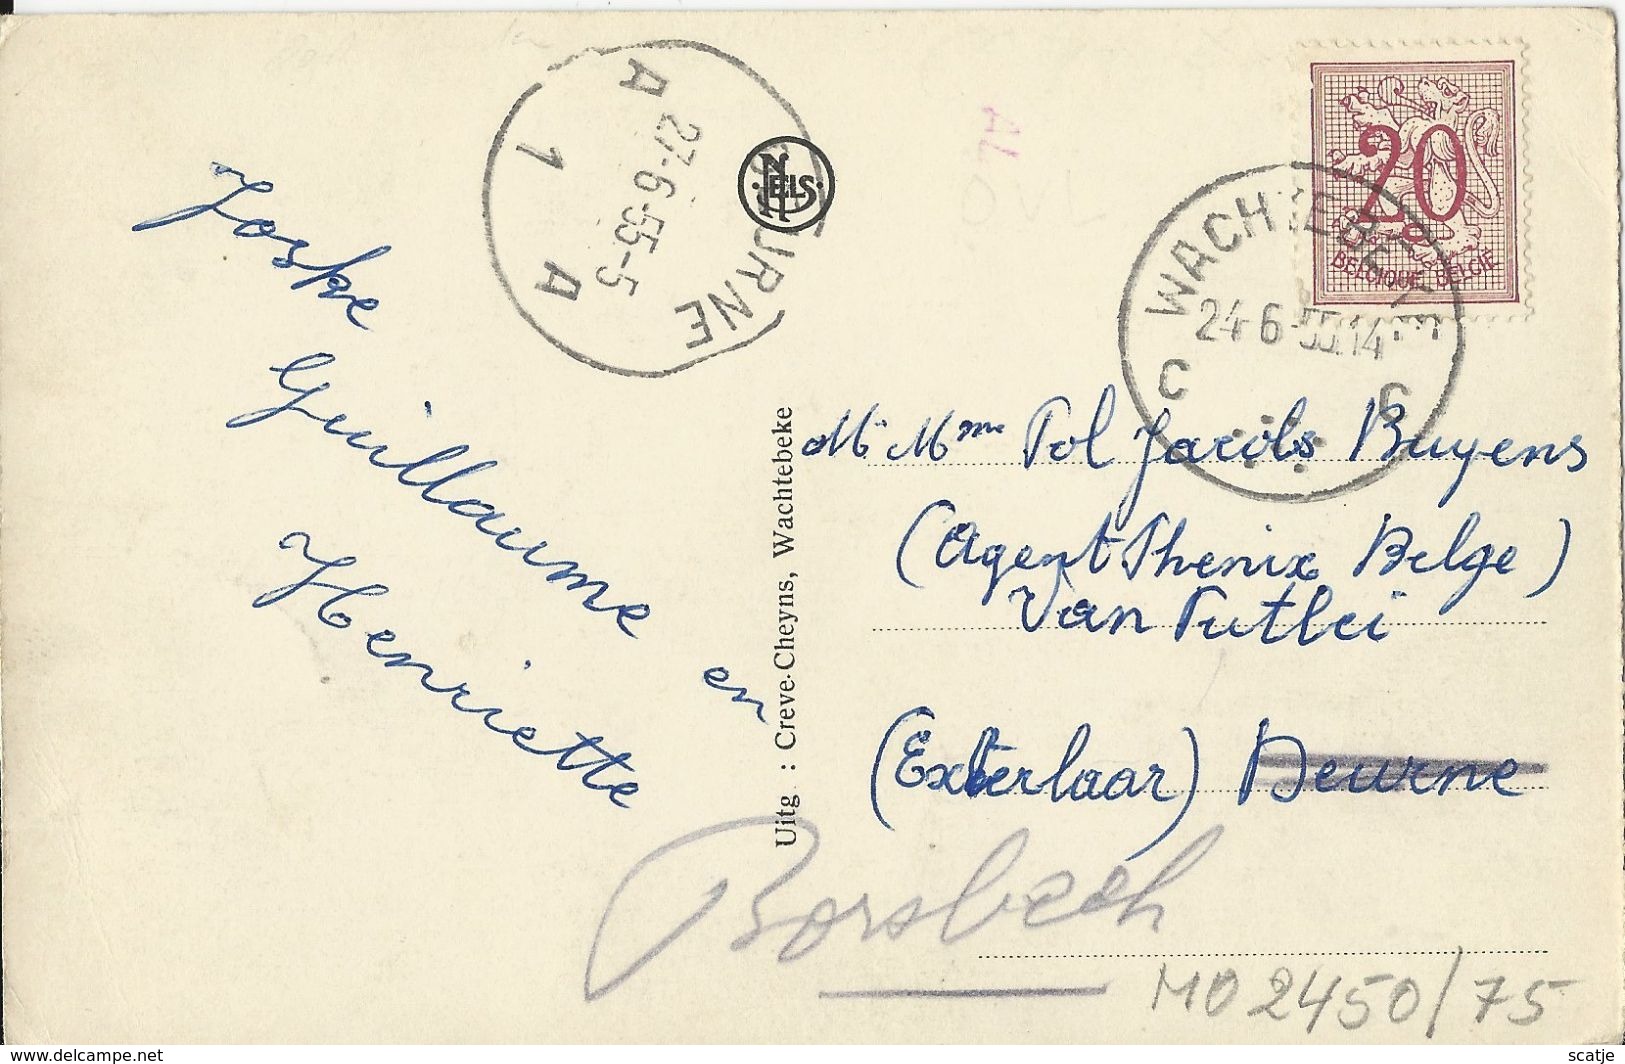 Joske
Guillaume en
Henriette
DEURNE
A A
27-6-55-5
1 A
NELS
Uitg : Creve-Cheyns, Wachtebeke
20
BELGIQUE BELGIË
WACHTEBEKE
24-6-55.14
C C
Mr Mme Pol Jacobs Buyens
(Agent Phenix Belge)
Van Tutlei
(Exterlaar) Deurne
Borsbeek
MO 2450/75
AL
delcampe.net
scatje